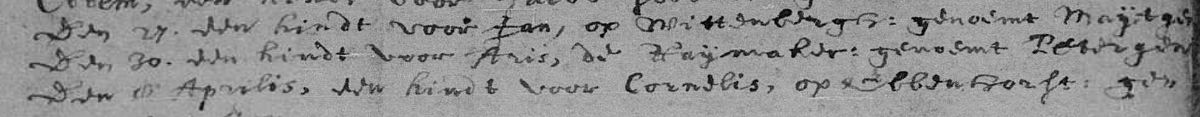 Den 27. een kindt voor Jan, op Wittenbergh: genoemt Maytgen
Den 30. een kindt voor Aris, de Raymaker: genoemt Petergen
Den 8 Aprilis, een kindt voor Cornelis, op Ebbenhorst: gen